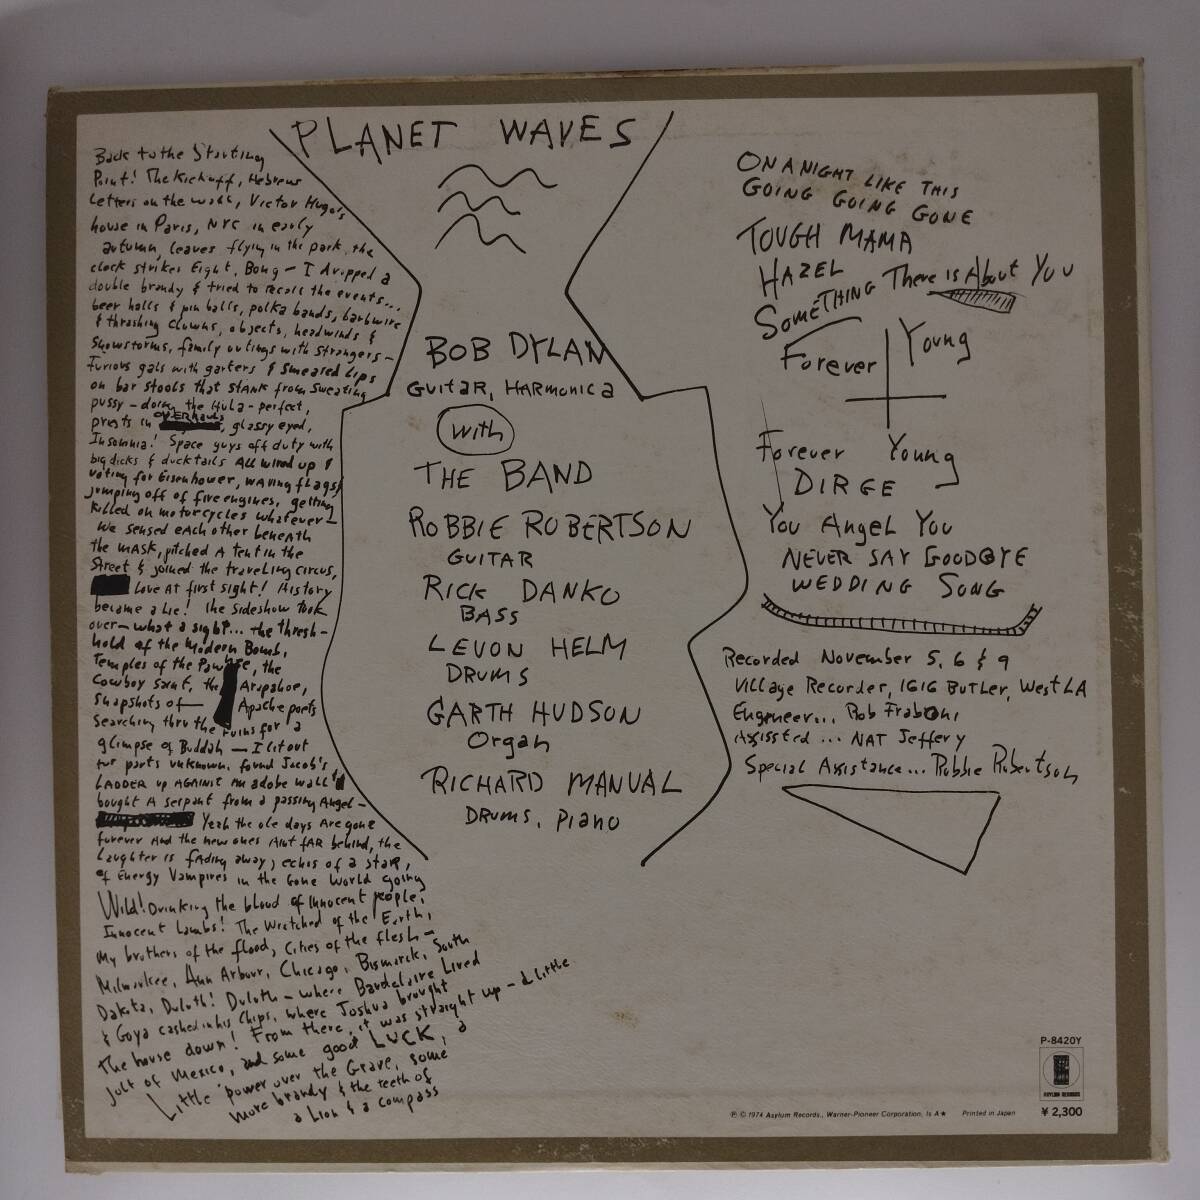 PLANET WAVES
Back to the Starting
Point! The Kickoff, Hebrew
Letters on the wall, Victor Hugo's
house in Paris, NYC in early
autumn, leaves flying in the park, the
clock strikes Eight, Bong - I dropped a
double brandy & tried to recall the events...
beer halls & pin balls, polka bands, barbwire
& thrashing clowns, objects, headwinds &
Snowstorms, family outings with strangers -
Furious gals with garters & smeared Lips
on bar stools that stank from sweating
pussy - doing the Hula - perfect,
priests in OVERhauls, glassy eyed,
Insomnia! Space guys off duty with
big dicks & ducktails All wired up &
voting for Eisenhower, waving flags &
jumping off of fire engines, getting
killed on motorcycles whatever -
We sensed each other beneath
the mask, pitched A tent in the
Street & joined the traveling circus,
Love at first sight! History
became a Lie! the sideshow took
over - what a sight... the thresh-
hold of the Modern Bomb,
Temples of the Pawnee, the
Cowboy saint, the Arapahoe,
Snapshots of Apache poets
Searching thru the ruins for a
glimpse of Buddah - I lit out
for parts unknown, found Jacob's
LADDER up AGAINST An adobe wall &
bought A serpant from a passing Angel -
Yeah the ole days Are gone
forever And the new ones Aint fAR behind, the
Laughter is fading away, echos of a staR,
of Energy Vampires in the Gone World going
Wild! Drinking the blood of innocent people,
Innocent Lambs! The Wretched of the Earth,
My brothers of the flood, Cities of the flesh -
Milwaukee, Ann Arbour, Chicago, Bismarck, South
Dakota, Duluth! Duluth - where Baudelaire Lived
& Goya cashed in his Chips, where Joshua brought
The house down! From there, it was straight up - a little
jolt of Mexico, and some good LUCK, a
Little power over the Grave, some
more brandy & the teeth of
a Lion & a compass
BOB DYLAN
GUITAR, HARMONICA
with
THE BAND
ROBBIE ROBERTSON
GUITAR
RICK DANKO
BASS
LEVON HELM
DRUMS
GARTH HUDSON
Organ
RICHARD MANUAL
DRUMS, Piano
ON A NIGHT LIKE THIS
GOING GOING GONE
TOUGH MAMA
HAZEL
SOMETHING There is About You
Forever Young
Forever Young
DIRGE
You Angel You
NEVER SAY GOODBYE
WEDDING SONG
Recorded November 5, 6 & 9
Village Recorder, 1616 BUTLER, West LA
Engineer... Rob Fraboni
Assissted ... NAT Jeffery
Special Assistance... Robbie Robertson
P-8420Y
ASYLUM RECORDS
¥2,300
℗ © 1974 Asylum Records., Warner-Pioneer Corporation, Is A★ Printed in Japan